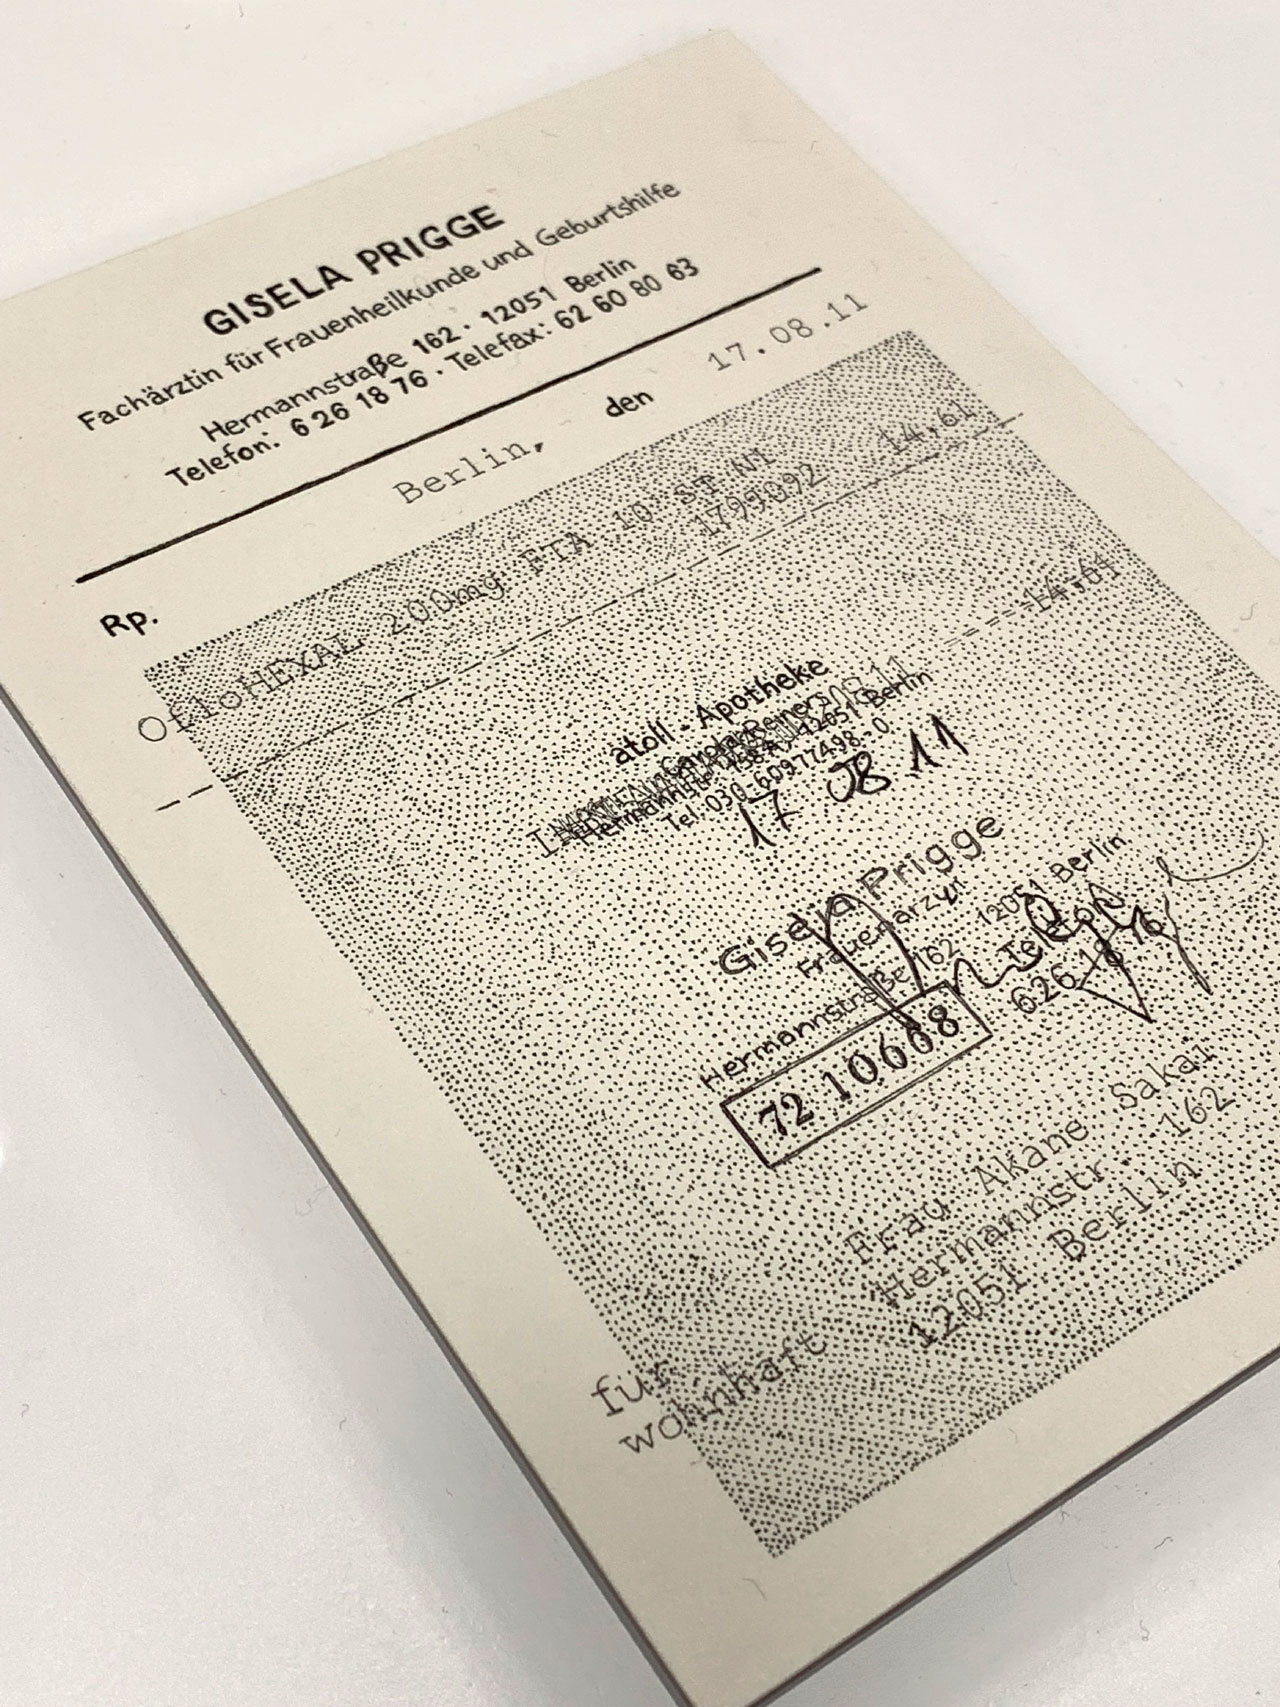 GISELA PRIGGE
Fachärztin für Frauenheilkunde und Geburtshilfe
Hermannstraße 162 · 12051 Berlin
Telefon: 6 26 18 76 · Telefax: 62 60 80 63
Berlin, den 17.08.11
Rp.
OfloHEXAL 200mg FTA 10 ST N1
1799092 14,61
14.61
atoll - Apotheke
12051 Berlin
Tel. 030-60977498-0
17 08 11
Gisela Prigge
Frauenarzt
Hermannstraße 162 12051 Berlin
Telefon
626 18 76
72 10668
für Frau Akane Sakai
wohnhaft Hermannstr. 162
12051 Berlin